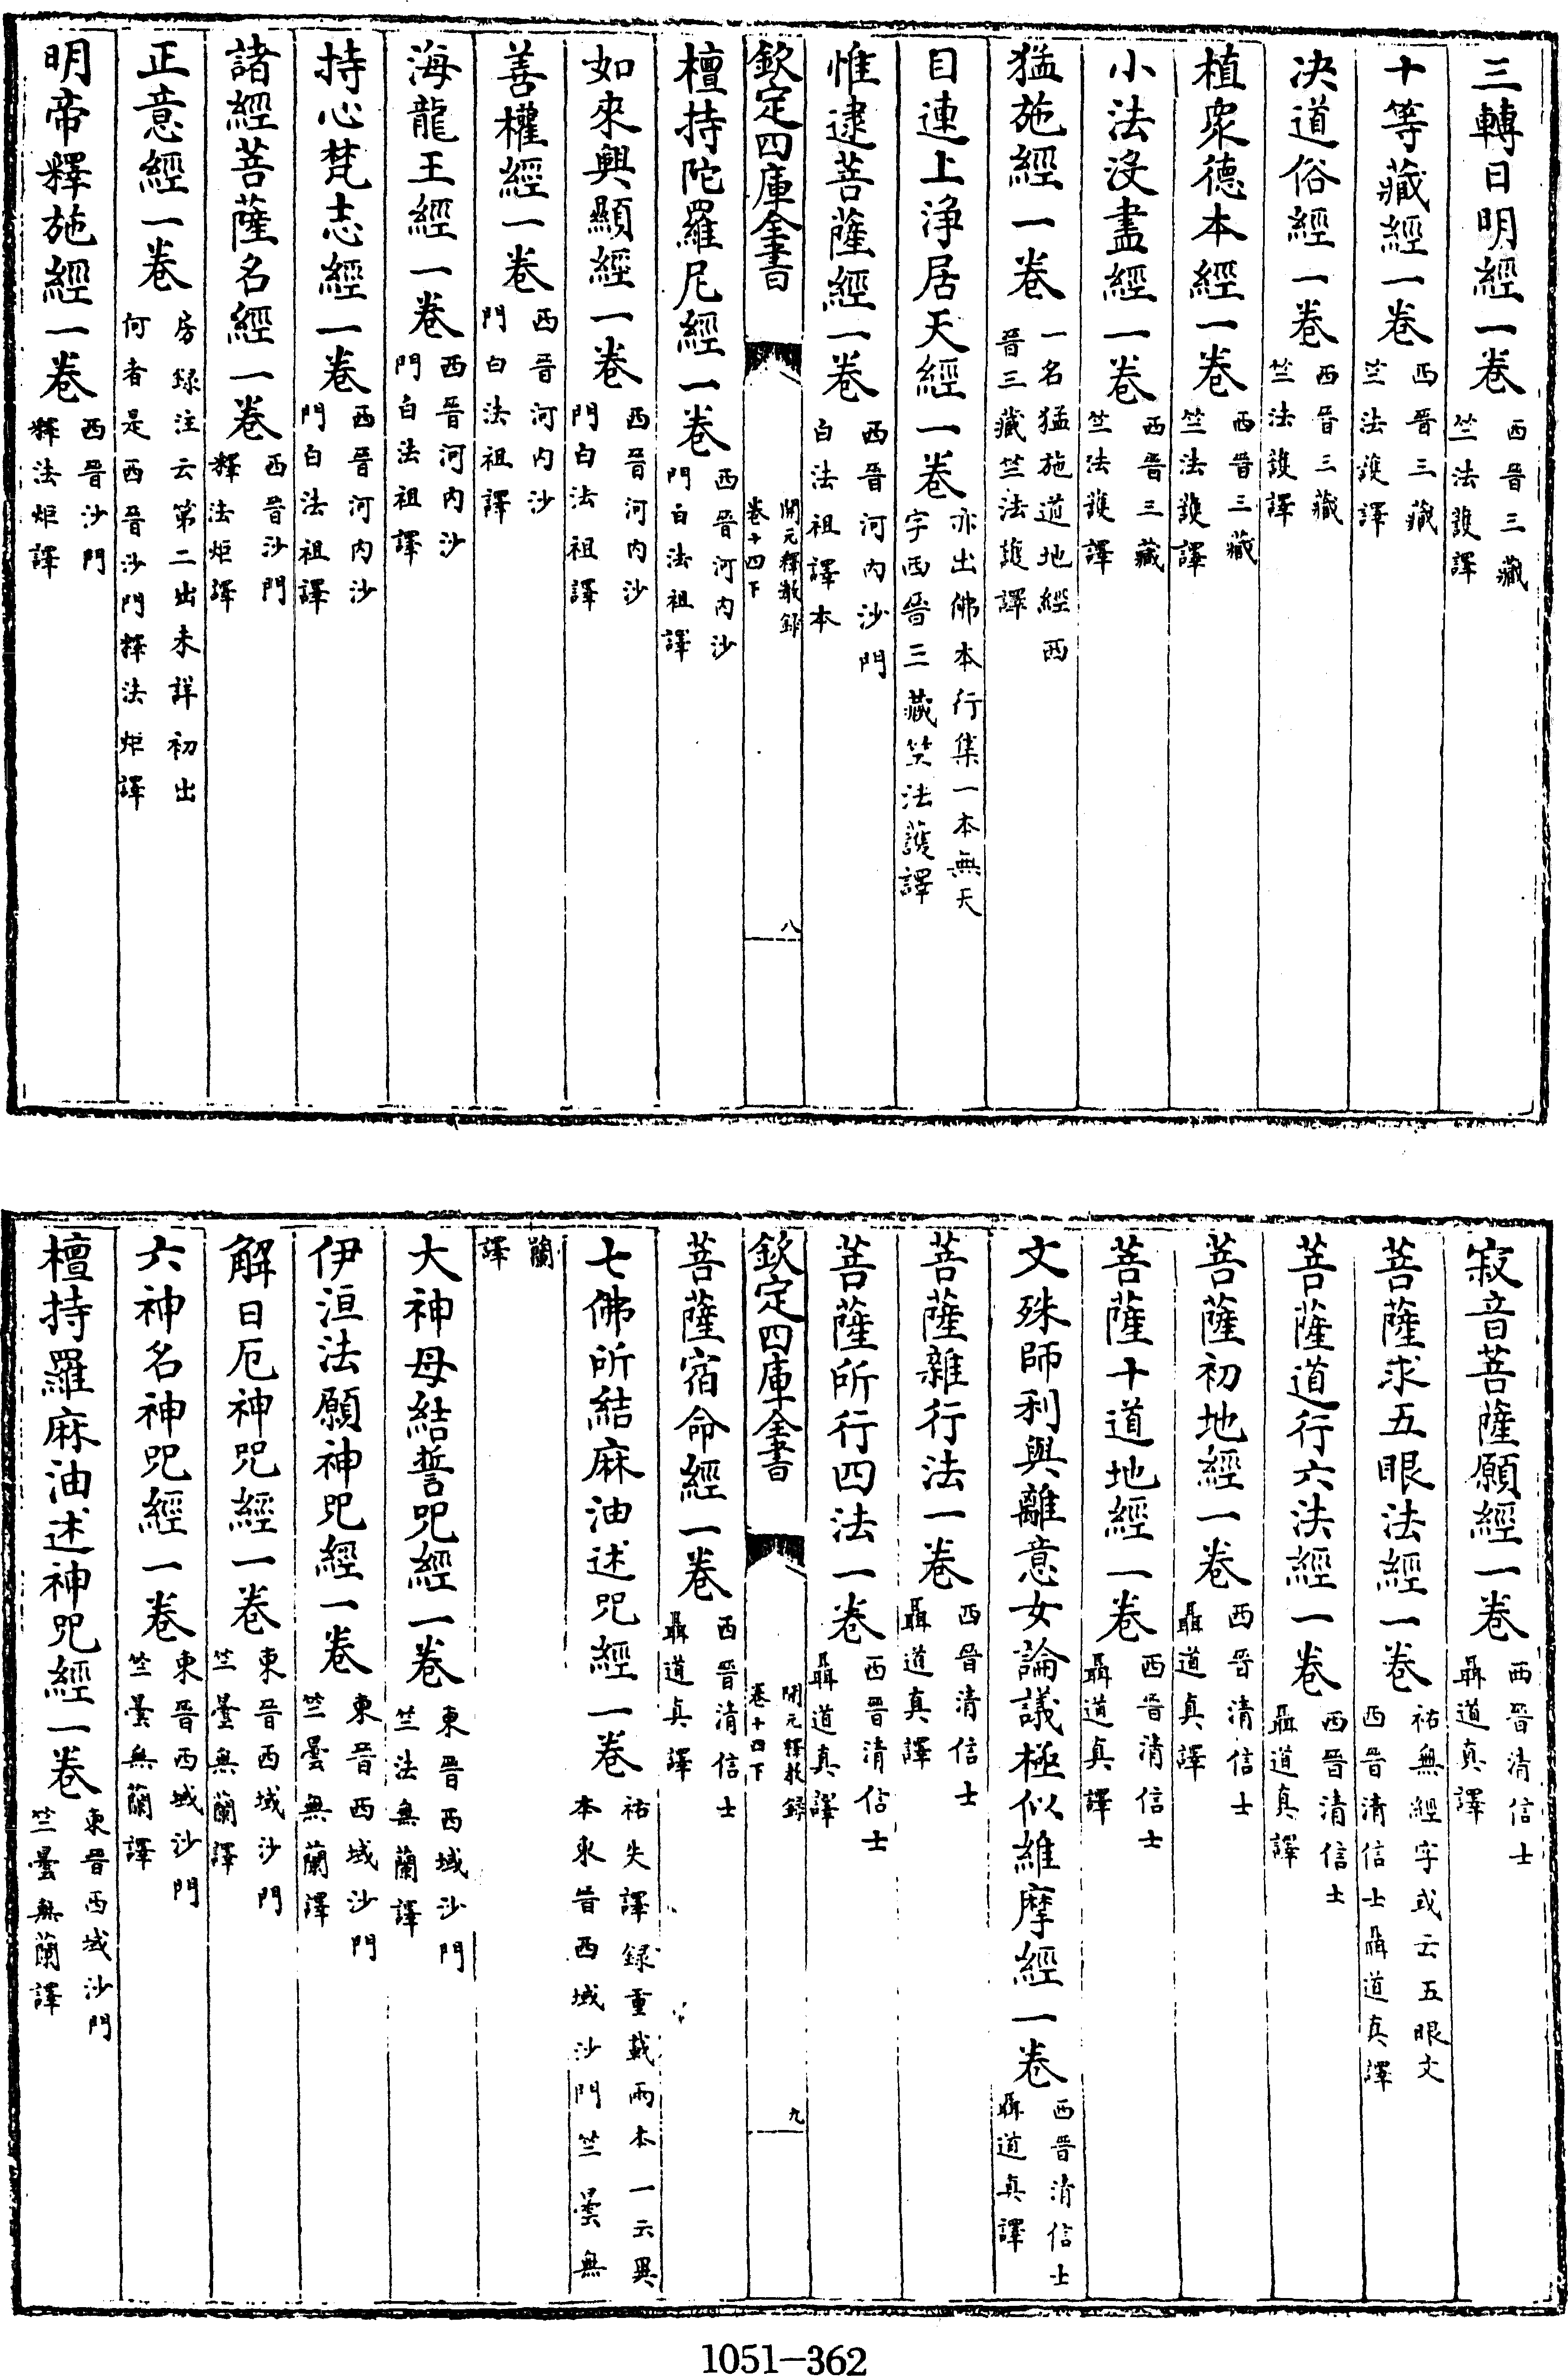 三轉日明經一卷西晉三藏竺法護譯
十等藏經一卷西晉三藏竺法護譯
决道俗經一卷西晉三藏竺法護譯
植衆德本經一卷西晉三藏竺法護譯
小法没盡經一卷西晉三藏竺法護譯
猛施經一卷一名猛施道地經西晉三藏竺法護譯
目連上淨居天經一卷亦出佛本行集一本無天字西晉三藏竺法護譯
惟逮菩薩經一卷西晉河内沙門白法祖譯本
欽定四庫全書 開元釋教録卷十四下 八
檀持陀羅尼經一卷西晉河内沙門白法祖譯
如來興顯經一卷西晉河内沙門白法祖譯
善權經一卷西晉河内沙門白法祖譯
海龍王經一卷西晉河内沙門白法祖譯
持心梵志經一卷西晉河内沙門白法祖譯
諸經菩薩名經一卷西晉沙門釋法炬譯
正意經一卷房録注云第二出未詳初出何者是西晉沙門釋法炬譯
明帝釋施經一卷西晉沙門釋法炬譯
寂音菩薩願經一卷西晉清信士聶道真譯
菩薩求五眼法經一卷祐無經字或云五眼文西晉清信士聶道真譯
菩薩道行六法經一卷西晉清信士聶道真譯
菩薩初地經一卷西晉清信士聶道真譯
菩薩十道地經一卷西晉清信士聶道真譯
文殊師利與離意女論議極似維摩經一卷西晉清信士聶道真譯
菩薩雜行法一卷西晉清信士聶道真譯
菩薩所行四法一卷西晉清信士聶道真譯
欽定四庫全書 開元釋教録卷十四下 九
菩薩宿命經一卷西晉清信士聶道真譯
七佛所結麻油述咒經一卷祐失譯録重載兩本一云異本東晉西域沙門竺曇無
蘭譯
大神母結誓咒經一卷東晉西域沙門竺法無蘭譯
伊洹法願神咒經一卷東晉西域沙門竺曇無蘭譯
解日厄神咒經一卷東晉西域沙門竺曇無蘭譯
六神名神咒經一卷東晉西域沙門竺曇無蘭譯
檀持羅麻油述神咒經一卷東晉西域沙門竺曇無蘭譯
1051-362